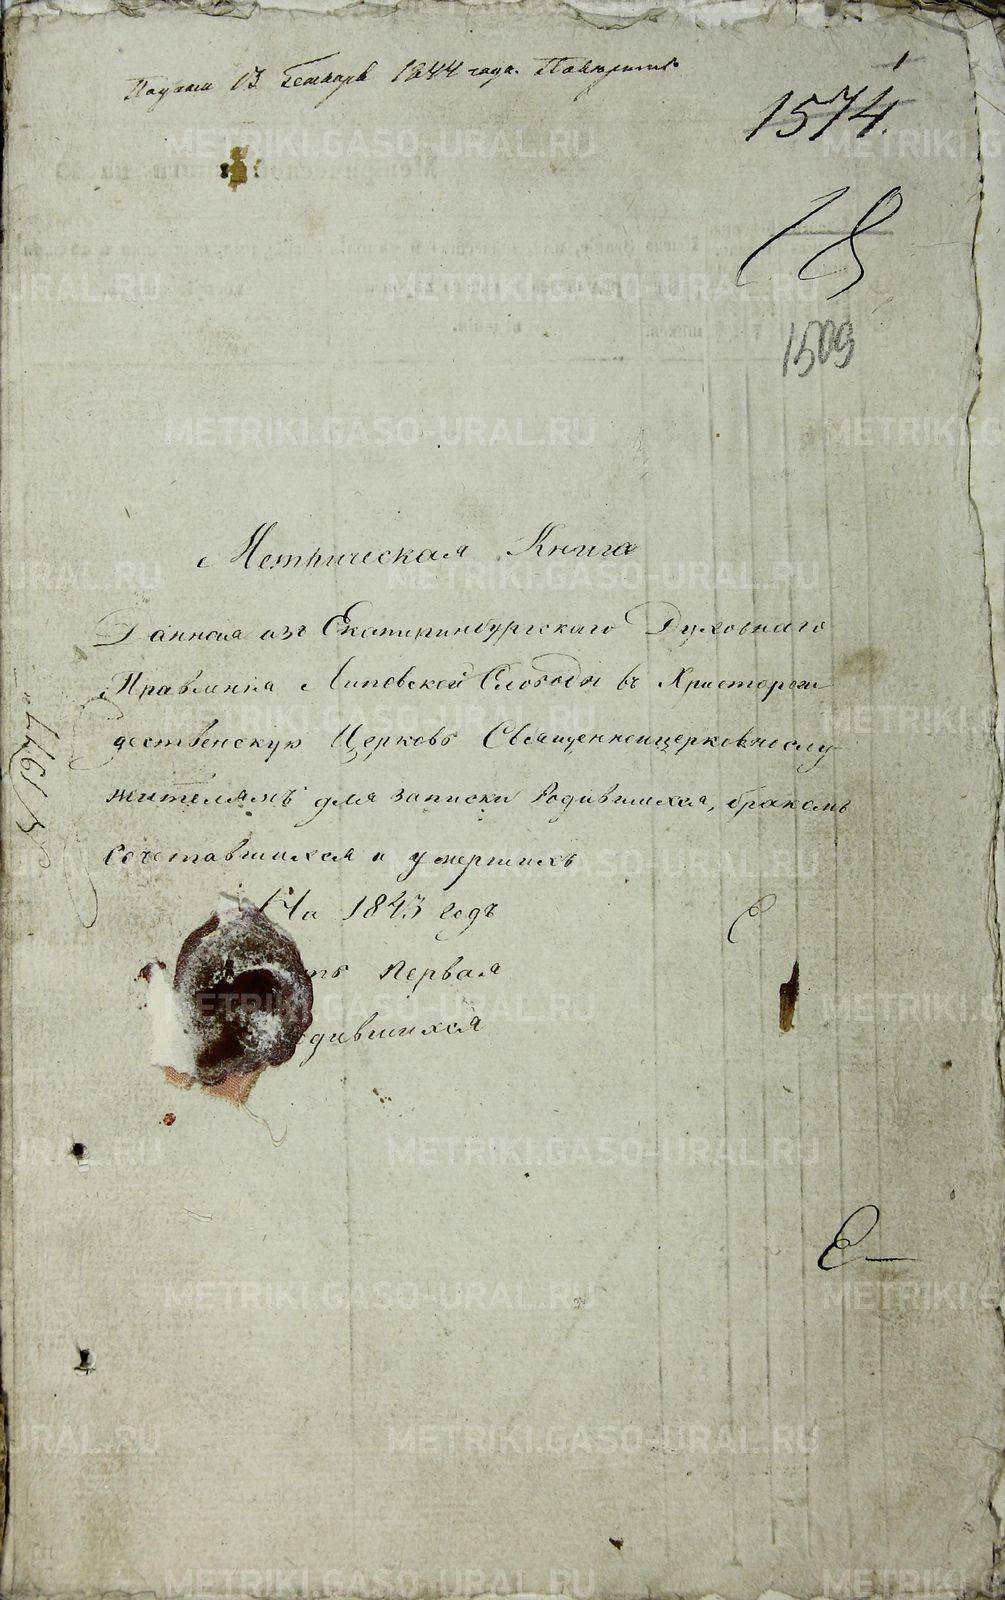 13 1844 года.
1
1574.
18
1509
Метрическая Книга
Данная изъ Екатеринбургскаго Духовнаго
Правленія Липовской Слободы въ Христорож
дественскую Церковь Священноцерковнослу
жителямъ для записки Родившихся, бракомъ
сочетавшихся и умершихъ
На 1843 годъ
ть первая
одившихся
METRIKI.GASO-URAL.RU